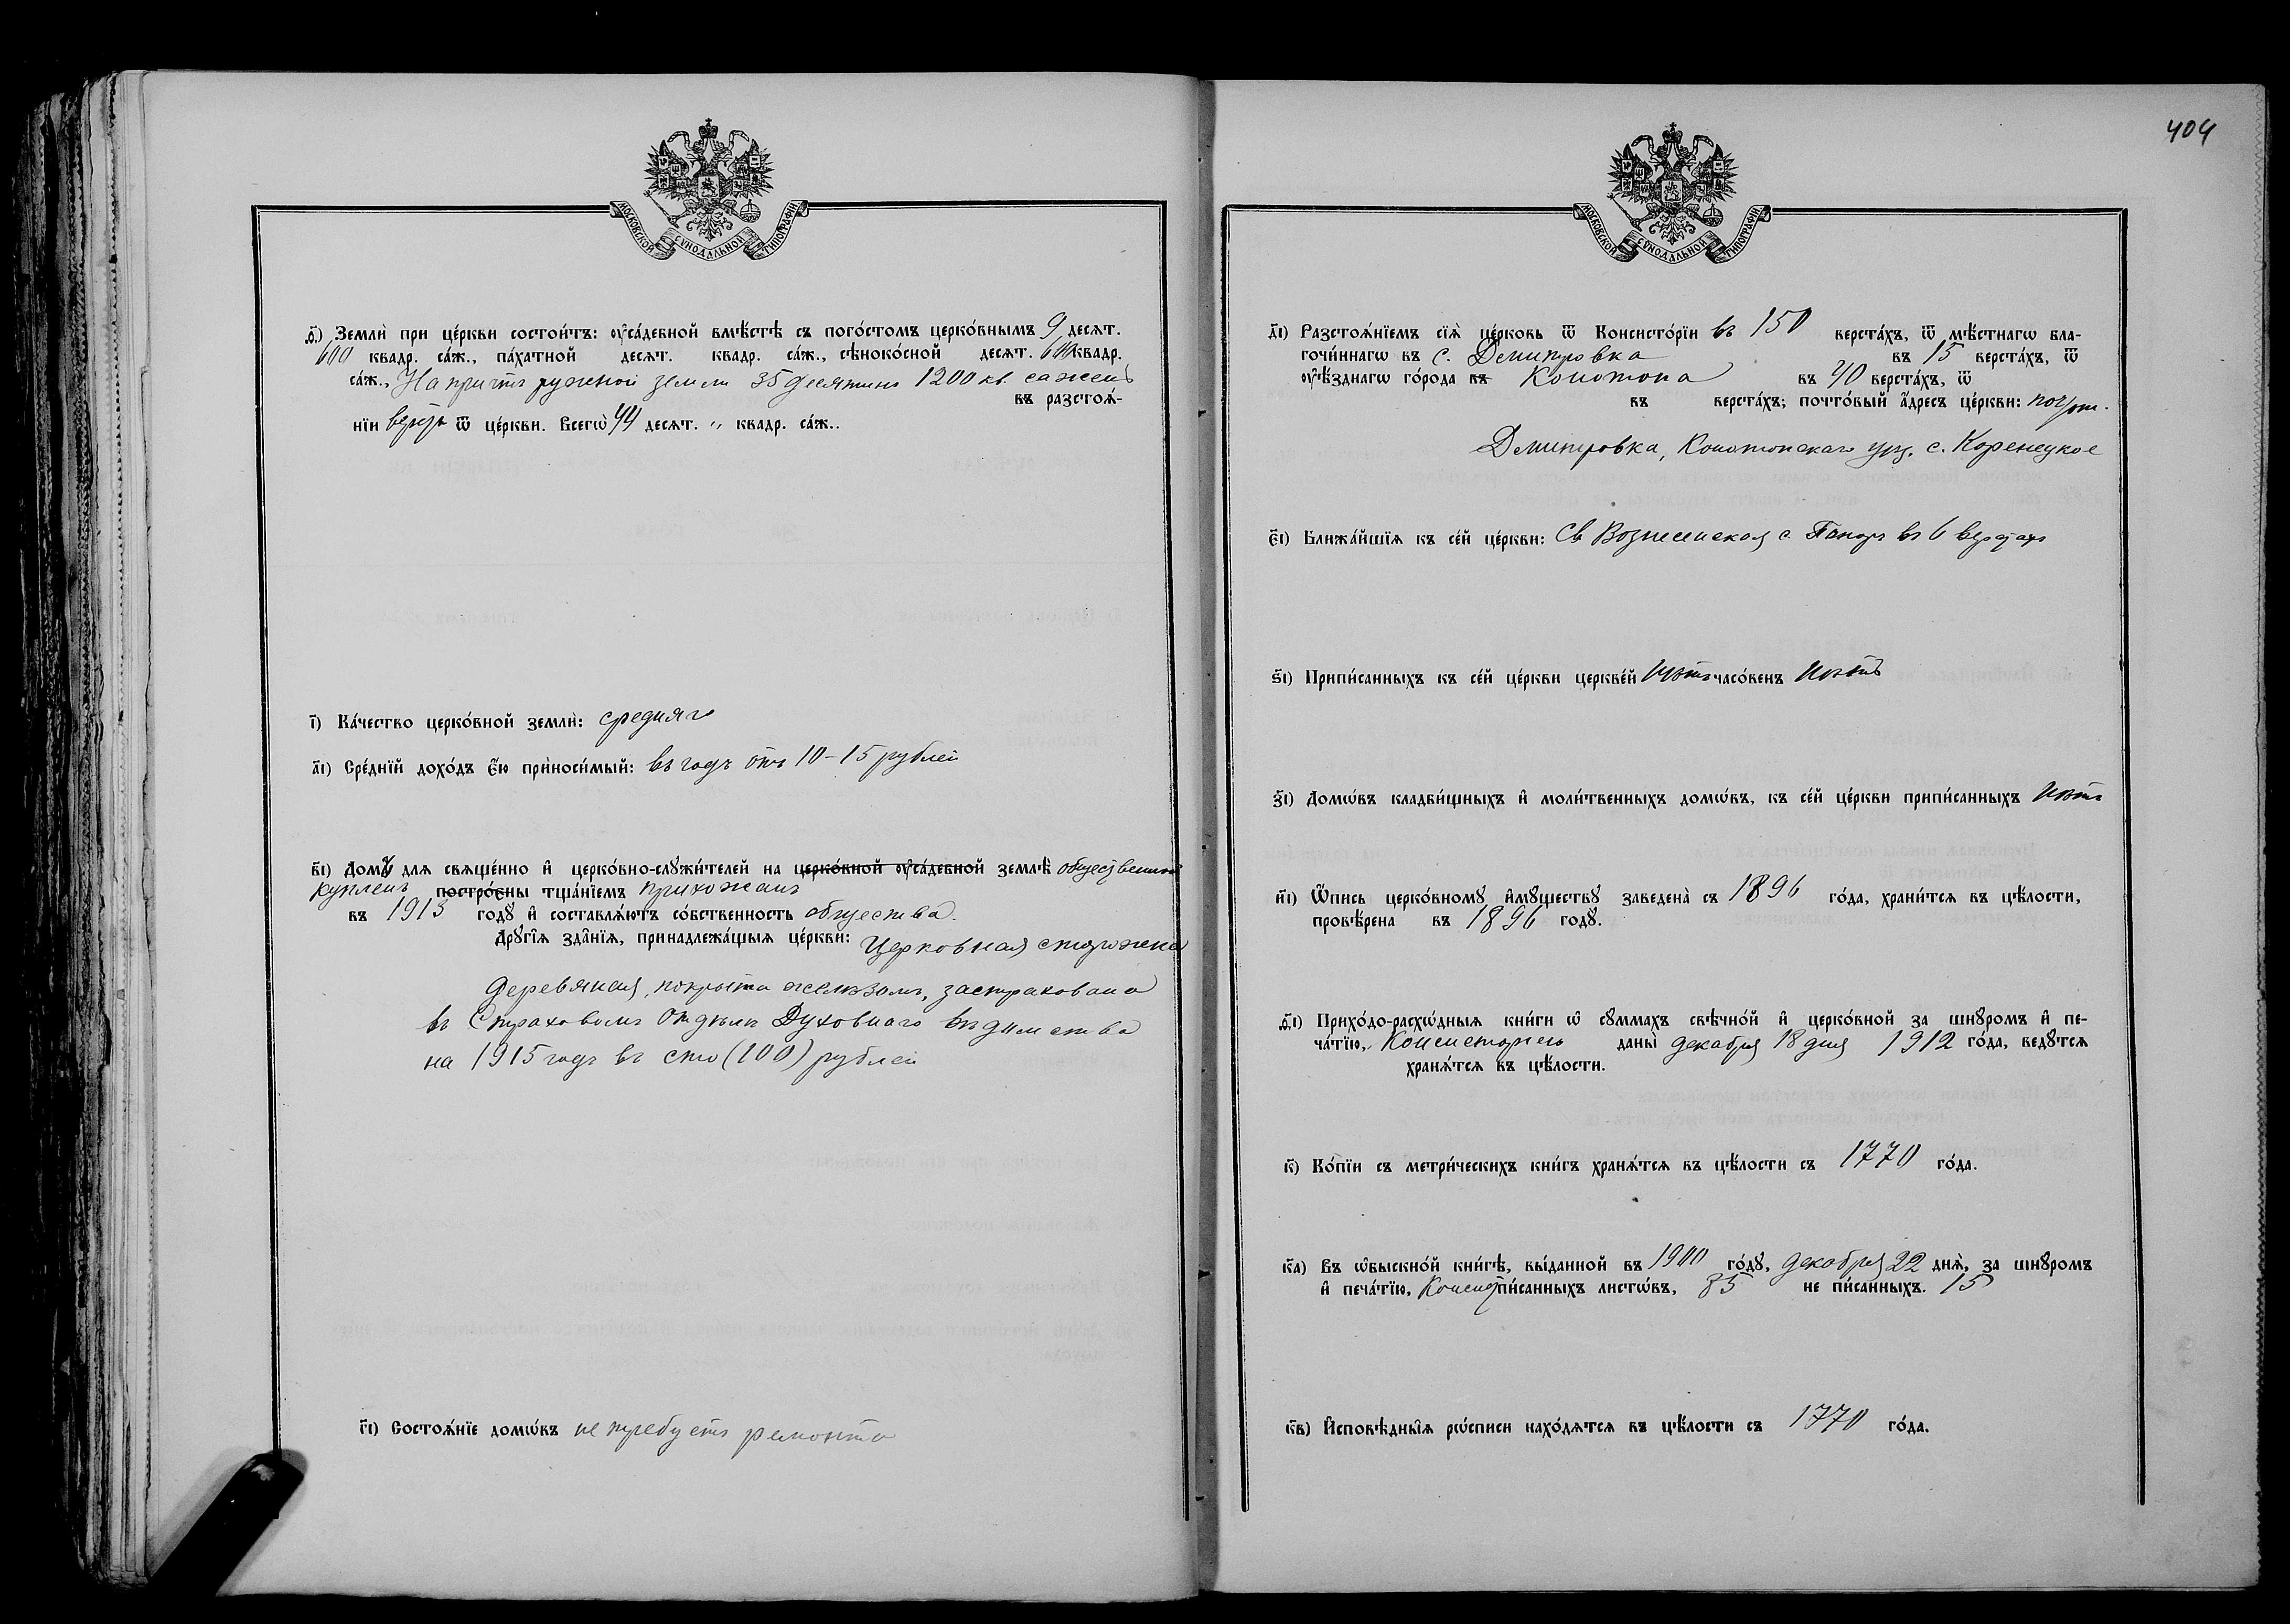 МОСКОВСКОЙ СѴНОДАЛЬНОЙ ТИПОГРАФІИ
ѳ҃) Землѝ при це́ркви состои́тъ: ᲂу҆са́дебной вмѣ́стѣ съ пого́стомъ церко́внымъ 9 десѧт.
600 квадр. са́ж., па́хатной десѧт. квадр. са́ж., сѣноко́сной десѧт. 600 квадр.
са́ж., На причтъ ружной земли 35 десятинъ 1200 кв. сажень
въ разстоѧ́-
нїи верстъ ѿ це́ркви. Всегѡ̀ 44 десѧт. „ квадр. са́ж..
і҃) Ка́чество церко́вной землѝ: средняго
а҃і) Сре́днїй дохо́дъ є҆́ю приноси́мый: въ годъ отъ 10-15 рублей
в҃і) Домъ для свѧще́нно и҆ церко́вно-слꙋжи́телей на церко́вной ᲂу҆са́дебной землѣ̀ общественной
купленъ постро́єны тща́нїемъ прихожанъ
въ 1913 годꙋ̀ и҆ составлѧ́ютъ со́бственность общества.
Дрꙋгі̑ѧ зда̑нїѧ, принадлежа́щыѧ це́ркви: Церковная сторожка
деревяная, покрыта желѣзомъ, застрахована
въ Страховомъ Отдѣлѣ Духовнаго вѣдомства
на 1915 годъ въ сто (100) рублей
г҃і) Состоѧ́нїе домѡ́въ не требуетъ ремонта
404
МОСКОВСКОЙ СѴНОДАЛЬНОЙ ТИПОГРАФІИ
д҃і) Разстоѧ́нїемъ сїѧ̀ це́рковь ѿ Консисто́рїи въ 150 верста́хъ, ѿ мѣ́стнагѡ бла-
гочи́ннагѡ въ с. Дмитровка въ 15 верста́хъ, ѿ
ᲂу҆ѣ́зднагѡ го́рода въ Конотопа въ 40 верста́хъ, ѿ
въ верста́хъ; почто́вый а҆́дресъ це́ркви: почт.
Дмитровка, Конотопскаго уѣз. с. Коренецкое
є҃і) Ближа́йшїѧ къ се́й це́ркви: Св Вознесенская с. въ 6 верстахъ
ѕ҃і) Припи́санныхъ къ се́й це́ркви церкве́й нѣтъ часо́венъ нѣтъ
з҃і) Домѡ́въ кладби́щныхъ и҆ моли́твенныхъ домѡ́въ, къ се́й це́ркви припи́санныхъ нѣтъ
и҃і) Ѻ҆́пись церко́вномꙋ и҆мꙋ́ществꙋ заведена̀ съ 1896 го́да, храни́тсѧ въ цѣ́лости,
провѣ́рена въ 1896 годꙋ.
ѳ҃і) Прихо́до-расхѡ́дныѧ кни́ги ѡ҆ сꙋ́ммахъ свѣчно́й и҆ церко́вной за шнꙋ́ромъ и҆ пе-
ча́тїю, Консисторіею даны̀ декабря 18 дня 1912 го́да, ведꙋ́тсѧ
хранѧ́тсѧ въ цѣ́лости.
к҃) Ко́пїи съ метри́ческихъ кни́гъ хранѧ́тсѧ въ цѣ́лости съ 1770 го́да.
к҃а) Въ ѡ҆быскно́й кни́гѣ, вы́данной въ 1900 го́дꙋ, декабря 22 днѧ̀, за шнꙋ́ромъ
и҆ печа́тїю, Консист пи́санныхъ листѡ́въ, 85 не пи́санныхъ. 15
к҃в) И҆сповѣ́дныѧ рѡ́списи нахо́дѧтсѧ въ цѣ́лости съ 1770 го́да.